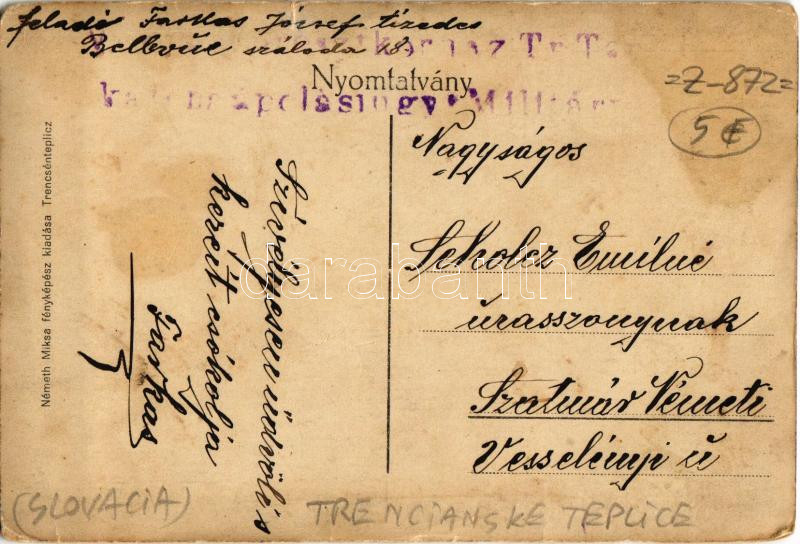 feladó Farkas József tizedes
Bellevue szálloda 18.
Nyomtatvány
=Z-872=
5 €
Németh Miksa fényképész kiadása Trencsénteplicz
Szívélyesen üdvözli s
kezeit csókolja
Farkas
Nagyságos
Sckolcz Emilné
úrasszonynak
Szatmár Németi
Vesselényi ú
darabanth
(SLOVACIA)
TRENCIANSKE TEPLICE